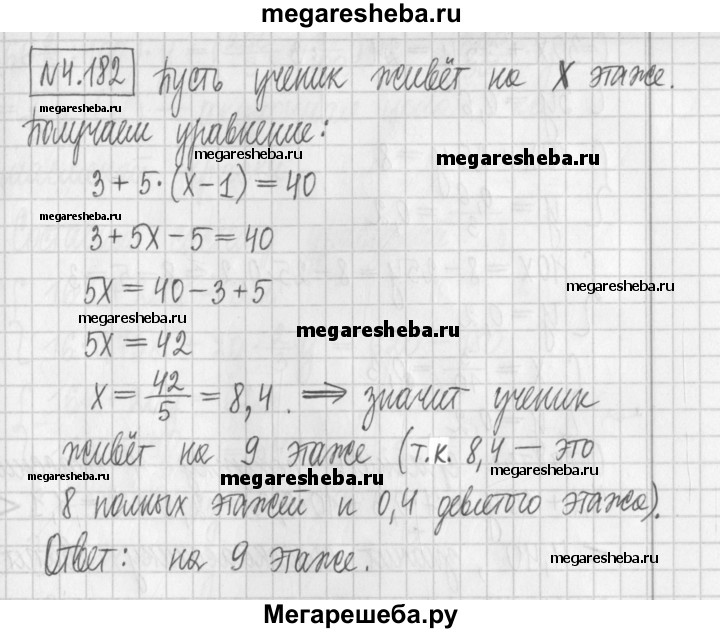 megaresheba.ru
N4.182 Пусть ученик живёт на X этаже.
megaresheba.ru
Получаем уравнение:
megaresheba.ru
megaresheba.ru
3 + 5·(X−1) = 40
megaresheba.ru
3 + 5X − 5 = 40
5X = 40 − 3 + 5
megaresheba.ru
megaresheba.ru
5X = 42
megaresheba.ru
X = 42/5 = 8,4. ⟹ значит ученик
живёт на 9 этаже (т.к. 8,4 — это
megaresheba.ru
megaresheba.ru
megaresheba.ru
8 полных этажей и 0,4 девятого этажа).
Ответ: на 9 этаже.
megaresheba.ru
Мегарешеба.ру